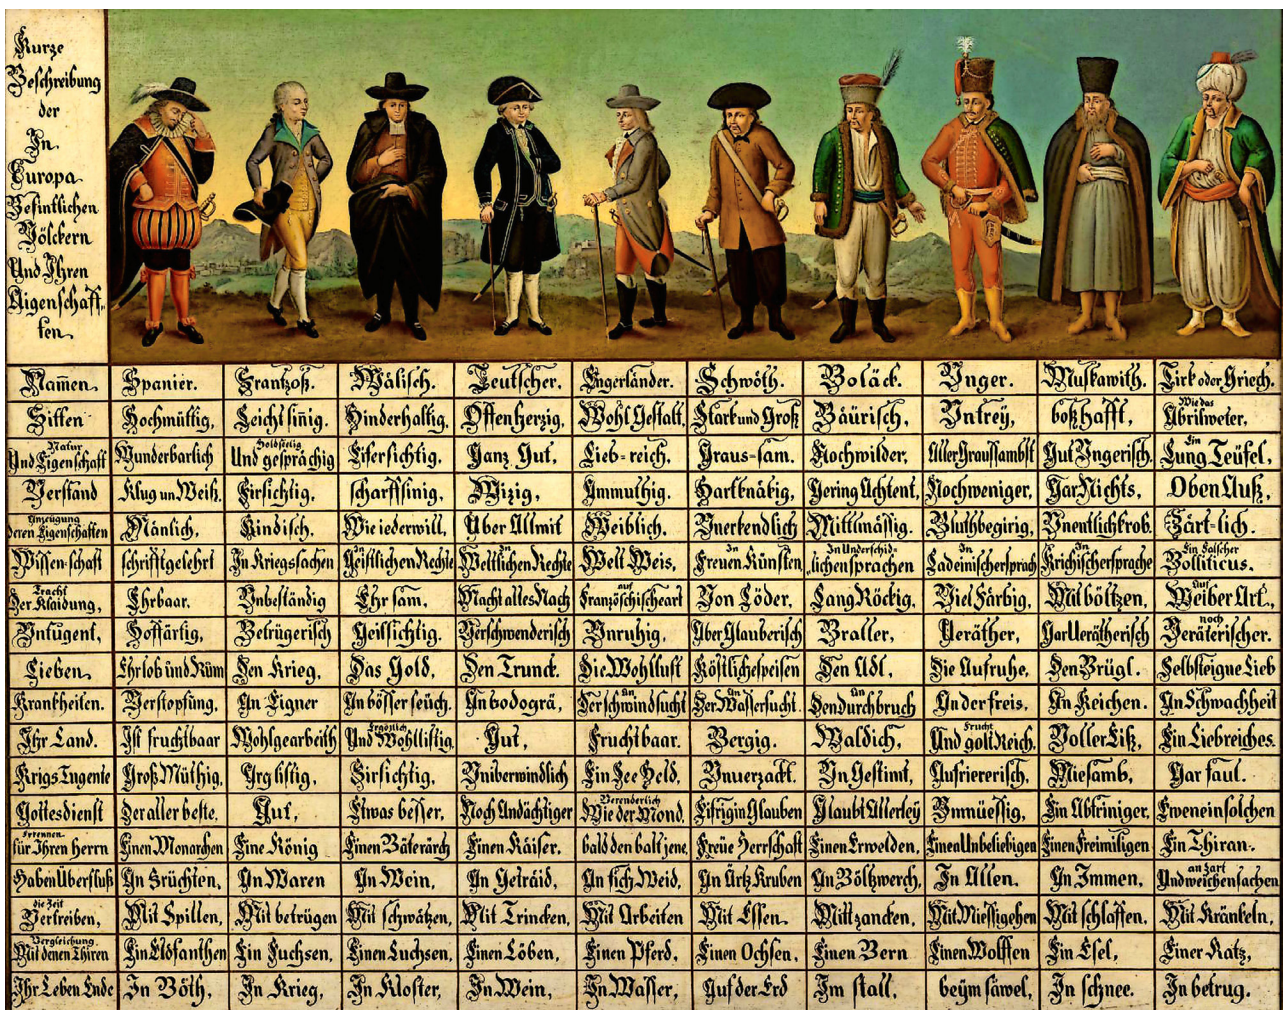 Kurze
Beschreibung
der
In
Europa
Befintlichen
Völckern
Und Ihren
Aigenschaff-
ten
Namen. Spanier. Frantzoß. Wälisch. Teutscher. Engerländer. Schwöth. Boläck. Vnger. Muskawith. Tirk oder Griech.
Sitten Hochmüttig, Leicht sinig. Hinderhaltig, Offenherzig, Wohl Gestalt, Stark und Groß Bäurisch, Vntrey, boßhafft, Wie das Abrilweter,
Natur Und Eigenschaft Wunderbarlich Holdseelig Und gesprächig Eifersichtig, Ganz Gut, Lieb-reich, Graus-sam. Nochwilder, Aller Graussambst Gut Vngerisch, Ein Lung Teüfel,
Verstand Klug un Weiß, Firsichtig, scharffsinig, Wizig, Ammuthig. Hartknäkig, Gering Achtent, Nochweniger, Gar Nichts, Oben Auß,
Anzeügung deren Eigenschaften Mänlich, Kindisch, Wie iederwill, Über Allmit Weiblich, Vnerkendlich Mittlmässig. Bluthbegirig, Vnentlichkrob. Zärt-lich.
Wissenschaft schrifftgelehrt In Kriegssachen In Geistlichen Rechte In Weltlichen Rechte Welt Weis, In Freuen Künsten, In Underschid-lichen sprachen In Ladeinischersprach In Krichischersprache Ein Falscher Bolliticus.
Tracht Der Klaidung, Ehrbaar. Vnbeständig Ehr sam, Macht alles Nach auf Französchischeart Von Löder, Lang Röckig, Viel Färbig, Mit böltzen, Auf Weiber Art.,
Vntugent, Hoffärtig, Betrügerisch Geillsichtig. Verschwenderisch Vnruhig, Über Glauberisch Braller, Veräther, Gar Verätherisch noch Veräterischer.
Lieben. Ehrlob und Rüm Den Krieg, Das Gold, Den Trunck. Die Wohllust Köstlichespeisen Den Adl, Die Aufruhe, Den Brügl. Selbsteigne Lieb
Krankheiten. Verstopfung, An Eigner An bösser seüch, An bodogrä, An Der schwindsucht An Der Wassersucht. An Den durchbruch An der freis, An Keichen. An Schwachheit
Ihr Land. Ist fruchtbaar Wohlgearbeith Ergötlich Und Wohllistig, Gut, Fruchtbaar. Bergig. Waldich, Frucht Und golt Reich. Voller Eiß, Ein Liebreiches.
Krigs Tugente Groß Müthig, Arg listig, Firsichtig, Vniberwindlich Ein See Held, Vnuerzackt. Vn Gestimt, Aufriererisch, Miesamb, Gar faul.
Gottesdienst der aller beste, Gut, Etwas besser, Noch Andächtiger Verenderlich Wie der Mond, Eifrig in Glauben Glaubt Allerley Vnmüessig, Ein Abtriniger, Eweneinsolchen
Erkennen für Ihren Herrn Einen Monarchen Eine König Einen Bäterärch Einen Käiser. bald den balt jene, Freüe Herrschaft Einen Erwelden, Einen Unbeliebigen Einen Freimiligen Ein Thiran.
Haben Überfluß An Früchten, An Waren An Wein, An Geträid, An fich Weid, An Ärtz Kruben An Böltzwerch, In Allen. An Immen, an zart Und weichen sachen
die Zeit Vertreiben, Mit Spillen, Mit betrügen Mit schwätzen, Mit Trincken, Mit Arbeiten Mit Essen. Mitt zancken, Mit Miessigehen Mit schlaffen. Mit Kränkeln,
Vergleichung Mit denen Thiren Ein Elofanthen Ein Fuchsen, Einen Luchsen, Einen Löben, Einen Pferd, Einen Ochsen, Einen Bern Einen Wolffen Ein Esel, Einer Katz,
Ihr Leben Ende In Böth, In Krieg, In Kloster, In Wein, In Wasser, Auf der Erd Im stall, beym säwel, In schnee. In betrug.